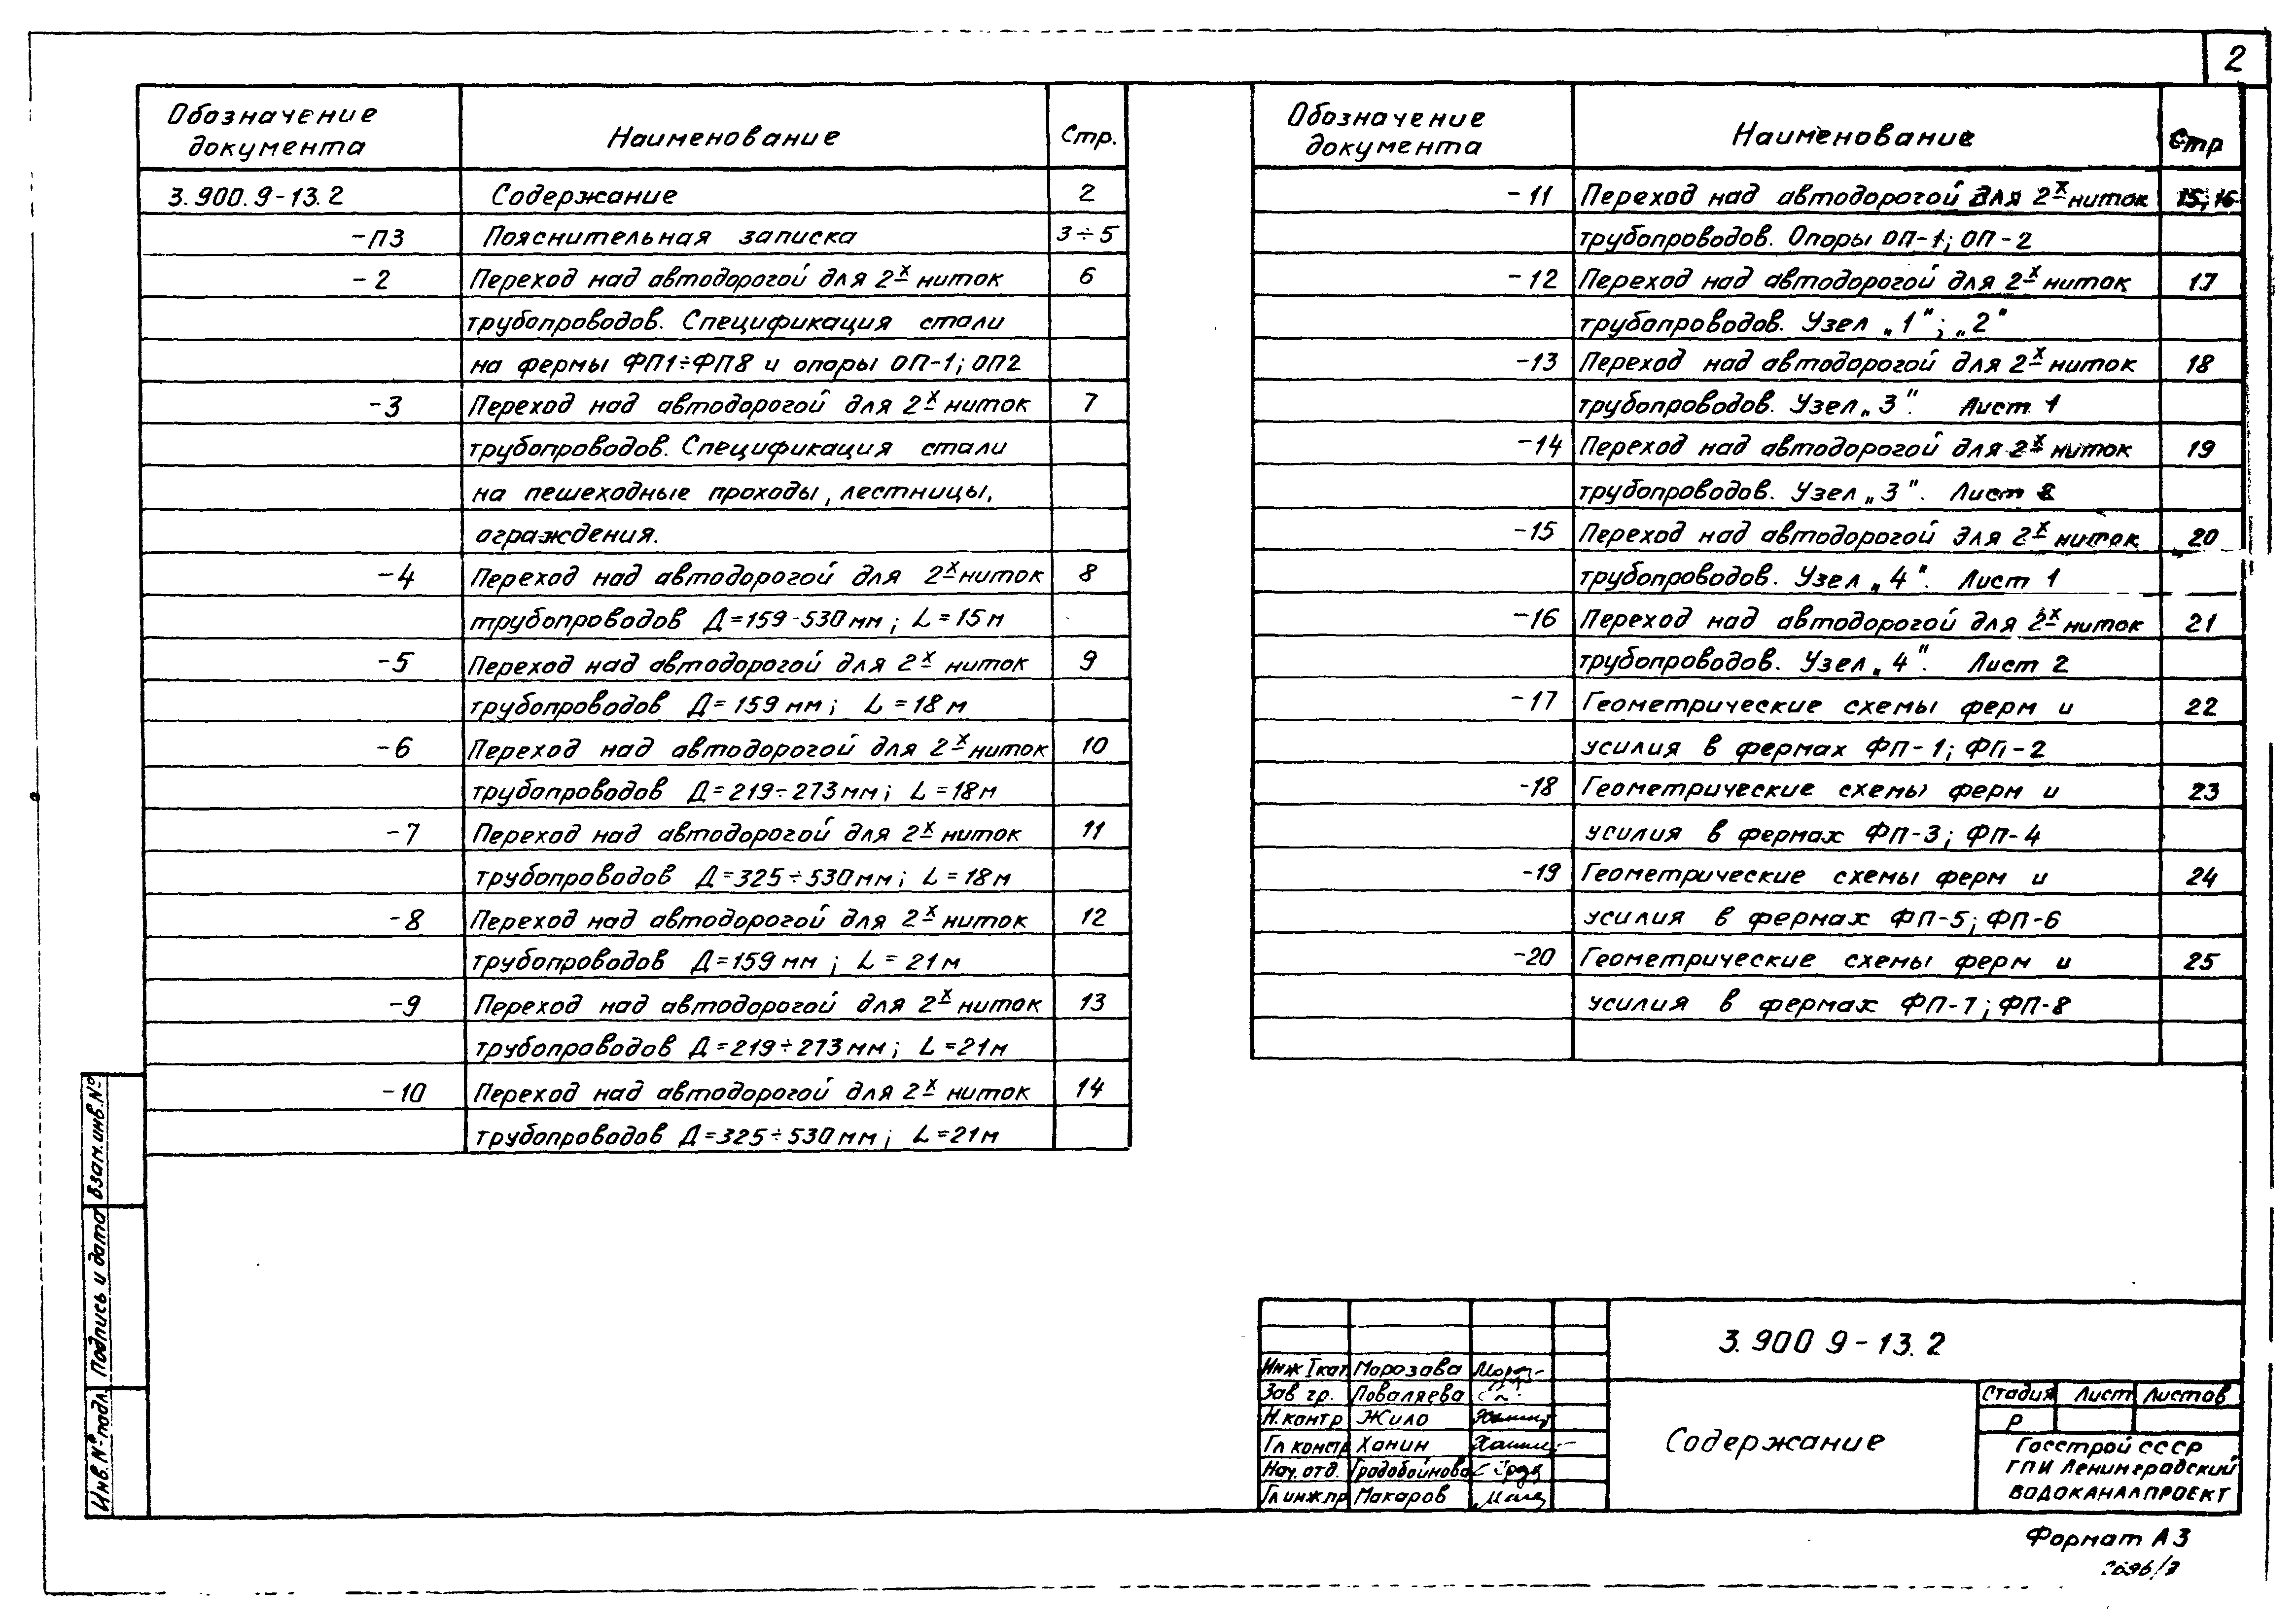 2
Обозначение документа Наименование Стр.
3.900.9-13.2 Содержание 2
-ПЗ Пояснительная записка 3÷5
-2 Переход над автодорогой для 2х ниток 6
трубопроводов. Спецификация стали
на фермы ФП1÷ФП8 и опоры ОП-1; ОП2
-3 Переход над автодорогой для 2х ниток 7
трубопроводов. Спецификация стали
на пешеходные проходы, лестницы,
ограждения.
-4 Переход над автодорогой для 2х ниток 8
трубопроводов Д=159-530мм; L=15м
-5 Переход над автодорогой для 2х ниток 9
трубопроводов Д=159мм; L=18м
-6 Переход над автодорогой для 2х ниток 10
трубопроводов Д=219÷273мм; L=18м
-7 Переход над автодорогой для 2х ниток 11
трубопроводов Д=325÷530мм; L=18м
-8 Переход над автодорогой для 2х ниток 12
трубопроводов Д=159мм; L=21м
-9 Переход над автодорогой для 2х ниток 13
трубопроводов Д=219÷273мм; L=21м
-10 Переход над автодорогой для 2х ниток 14
трубопроводов Д=325÷530мм; L=21м
Обозначение документа Наименование Стр
-11 Переход над автодорогой для 2х ниток 15;16
трубопроводов. Опоры ОП-1; ОП-2
-12 Переход над автодорогой для 2х ниток 17
трубопроводов. Узел „1"; „2"
-13 Переход над автодорогой для 2х ниток 18
трубопроводов. Узел „3". Лист 1
-14 Переход над автодорогой для 2х ниток 19
трубопроводов. Узел „3". Лист 2
-15 Переход над автодорогой для 2х ниток 20
трубопроводов. Узел „4". Лист 1
-16 Переход над автодорогой для 2х ниток 21
трубопроводов. Узел „4". Лист 2
-17 Геометрические схемы ферм и 22
усилия в фермах ФП-1; ФП-2
-18 Геометрические схемы ферм и 23
усилия в фермах ФП-3; ФП-4
-19 Геометрические схемы ферм и 24
усилия в фермах ФП-5; ФП-6
-20 Геометрические схемы ферм и 25
усилия в фермах ФП-7; ФП-8
Взам.инв.№
Подпись и дата
Инв.№ подл.
3.900 9-13.2
Инж I кат. Морозава
Зав гр. Поваляева
Н.контр Жило
Гл констр Ханин
Нач.отд. Градобойнова
Гл инж.пр Макаров
Содержание
Стадия Лист Листов
Р
Госстрой СССР
ГПИ Ленинградский
ВОДОКАНАЛПРОЕКТ
Формат А3